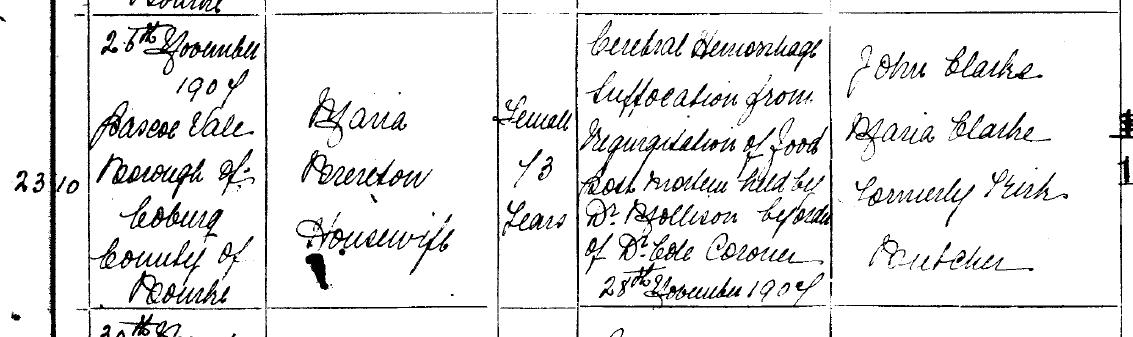 Bourke
2310
26th November
1907
Pascoe Vale
Borough of
Coburg
County of
Bourke
Maria
Brereton
Housewife
Female
73
Years
Cerebral Hemorrhage
Suffocation from
regurgitation of food
Post Mortem held by
Dr. Mollison by order
of Dr. Cole Coroner
28th November 1907
John Clarke
Maria Clarke
formerly Kirk
Butcher
30th